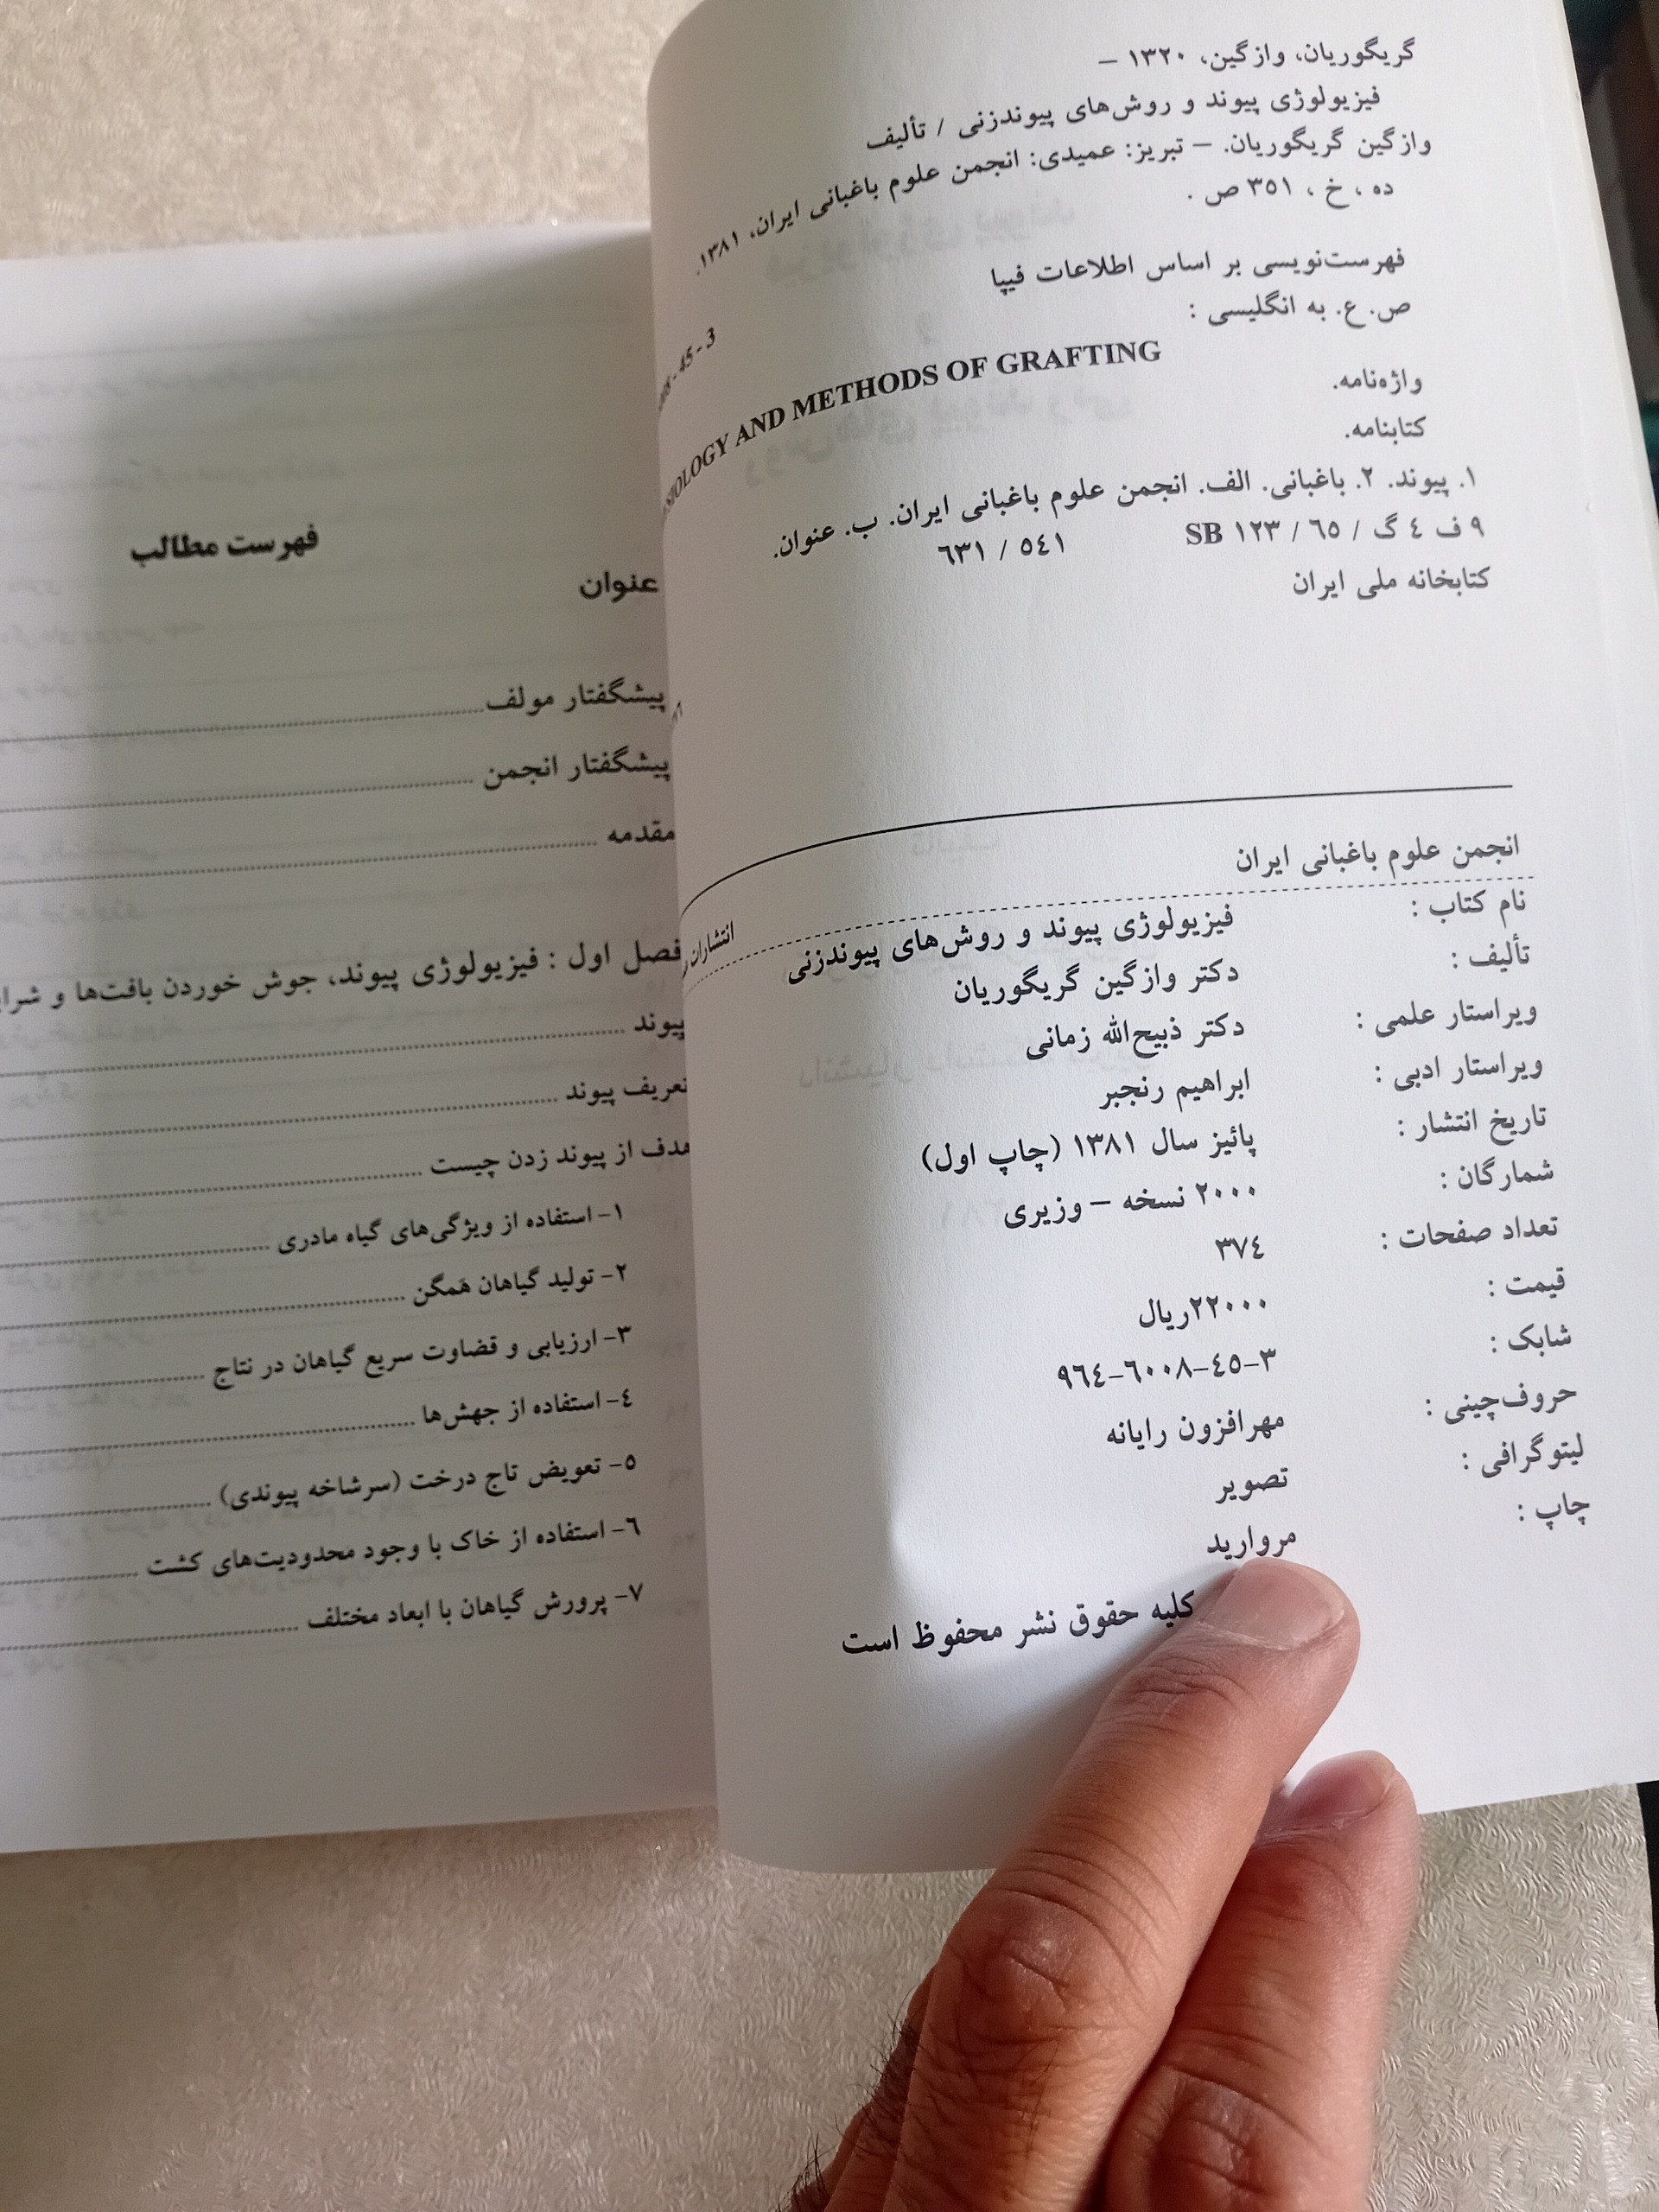 گریگوریان، وازگین، ۱۳۲۰ –
فیزیولوژی پیوند و روش‌های پیوندزنی / تألیف
وازگین گریگوریان. – تبریز: عمیدی: انجمن علوم باغبانی ایران، ۱۳۸۱.
ده ، خ ، ۳۵۱ ص .
45 - 3
فهرست‌نویسی بر اساس اطلاعات فیپا
ص. ع. به انگلیسی :
AND METHODS OF GRAFTING
واژه‌نامه.
کتابنامه.
۱. پیوند. ۲. باغبانی. الف. انجمن علوم باغبانی ایران. ب. عنوان.
۹ ف ٤ گ / ٦٥ / ۱۲۳ SB
٥٤۱ / ٦۳۱
کتابخانه ملی ایران
انجمن علوم باغبانی ایران
انتشارات
نام کتاب : فیزیولوژی پیوند و روش‌های پیوندزنی
تألیف : دکتر وازگین گریگوریان
ویراستار علمی : دکتر ذبیح‌الله زمانی
ویراستار ادبی : ابراهیم رنجبر
تاریخ انتشار : پائیز سال ۱۳۸۱ (چاپ اول)
شمارگان : ۲۰۰۰ نسخه – وزیری
تعداد صفحات : ۳۷٤
قیمت : ۲۲۰۰۰ریال
شابک : ۳-٤٥-٦۰۰۸-۹٦٤
حروف‌چینی : مهرافزون رایانه
لیتوگرافی : تصویر
چاپ : مروارید
کلیه حقوق نشر محفوظ است
فهرست مطالب
عنوان
پیشگفتار مولف
پیشگفتار انجمن
مقدمه
فصل اول : فیزیولوژی پیوند، جوش خوردن بافت‌ها و
پیوند
تعریف پیوند
هدف از پیوند زدن چیست
۱- استفاده از ویژگی‌های گیاه مادری
۲- تولید گیاهان هَمگن
۳- ارزیابی و قضاوت سریع گیاهان در نتاج
٤- استفاده از جهش‌ها
٥- تعویض تاج درخت (سرشاخه پیوندی)
٦- استفاده از خاک با وجود محدودیت‌های کشت
۷- پرورش گیاهان با ابعاد مختلف